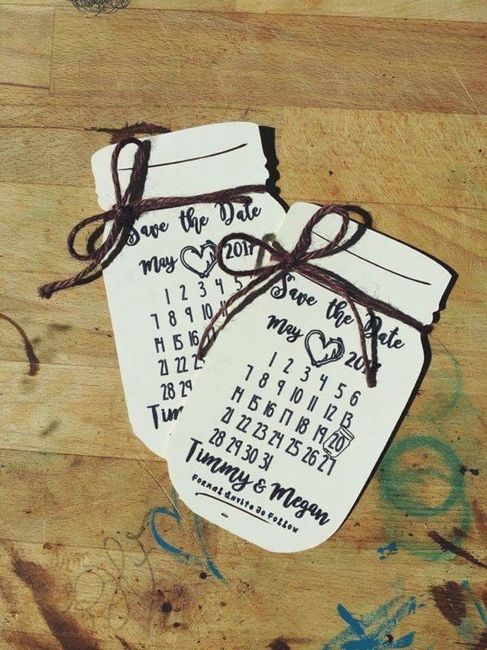 Save the Date
May 2017
1 2 3 4 5
7 8 9 10 11
14 15 16 17
21 22
28 29
Save the Date
May 2017
1 2 3 4 5 6
7 8 9 10 11 12 13
14 15 16 17 18 19 20
21 22 23 24 25 26 27
28 29 30 31
Timmy & Megan
Formal Invite to Follow